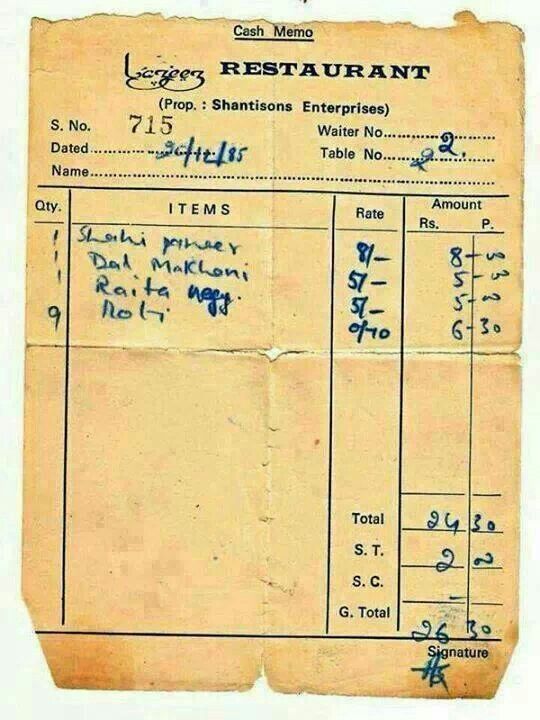 Cash Memo
Lazeez RESTAURANT
(Prop. : Shantisons Enterprises)
S. No. 715 Waiter No. 2.
Dated /12/85 Table No. 2
Name
Qty. ITEMS Rate Amount
Rs. P.
1 Shahi paneer 8/- 8-00
1 Dal Makhani 5/- 5-00
1 Raita 5/- 5-00
9 Roti 0/70 6-30
Total 24 30
S. T. 2 00
S. C. -
G. Total
26 30
Signature